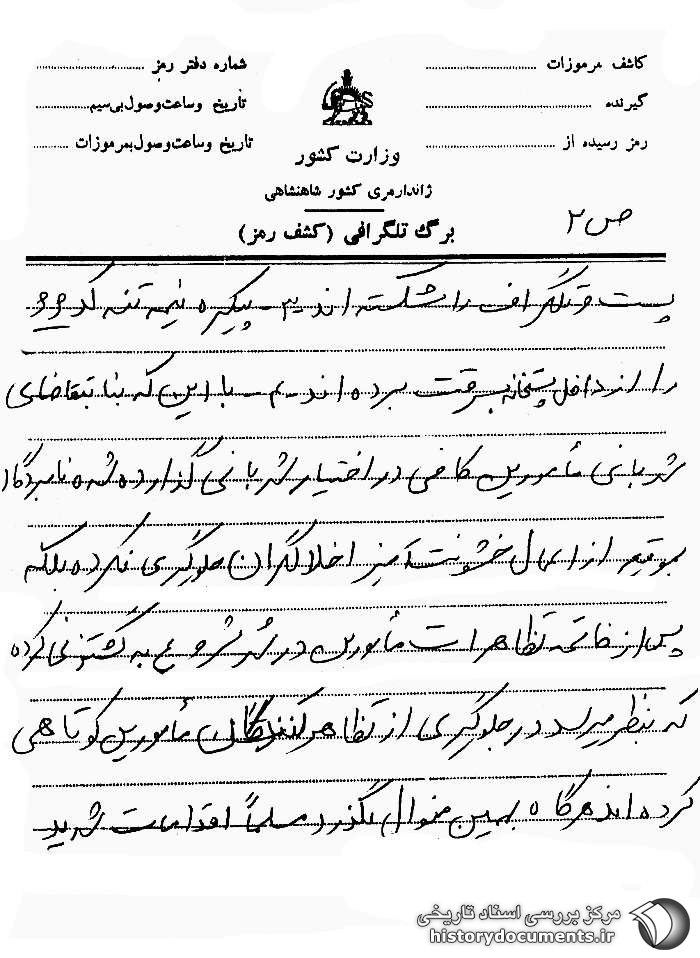 کاشف مرموزات
گیرنده
رمز رسیده از
شماره دفتر رمز
تاریخ وساعت‌وصول‌بی‌سیم
تاریخ وساعت‌وصول‌بمرموزات
وزارت کشور
ژاندارمری کشور شاهنشاهی
برگ تلگرافی (کشف رمز)
ص ۲
پست و تلگراف را شکسته اند ۳- پیکره نیمه تنه
را از داخل پستخانه بسرقت برده اند ۴- با این که بنا بتقاضای
شهربانی مأمورین کافی در اختیار شهربانی گذارده شده نامبردگان
بموقع از اعمال خشونت‌آمیز اخلالگران جلوگیری نکرده بلکه
پس از خاتمه تظاهرات مأمورین در شهر شروع به گشت‌زنی کرده
که بنظر میرسد در جلوگیری از تظاهرکنندگان مأمورین کوتاهی
کرده اند هرگاه بهمین منوال بگذرد مسلماً اقدامات شدید
مرکز بررسی اسناد تاریخی
historydocuments.ir